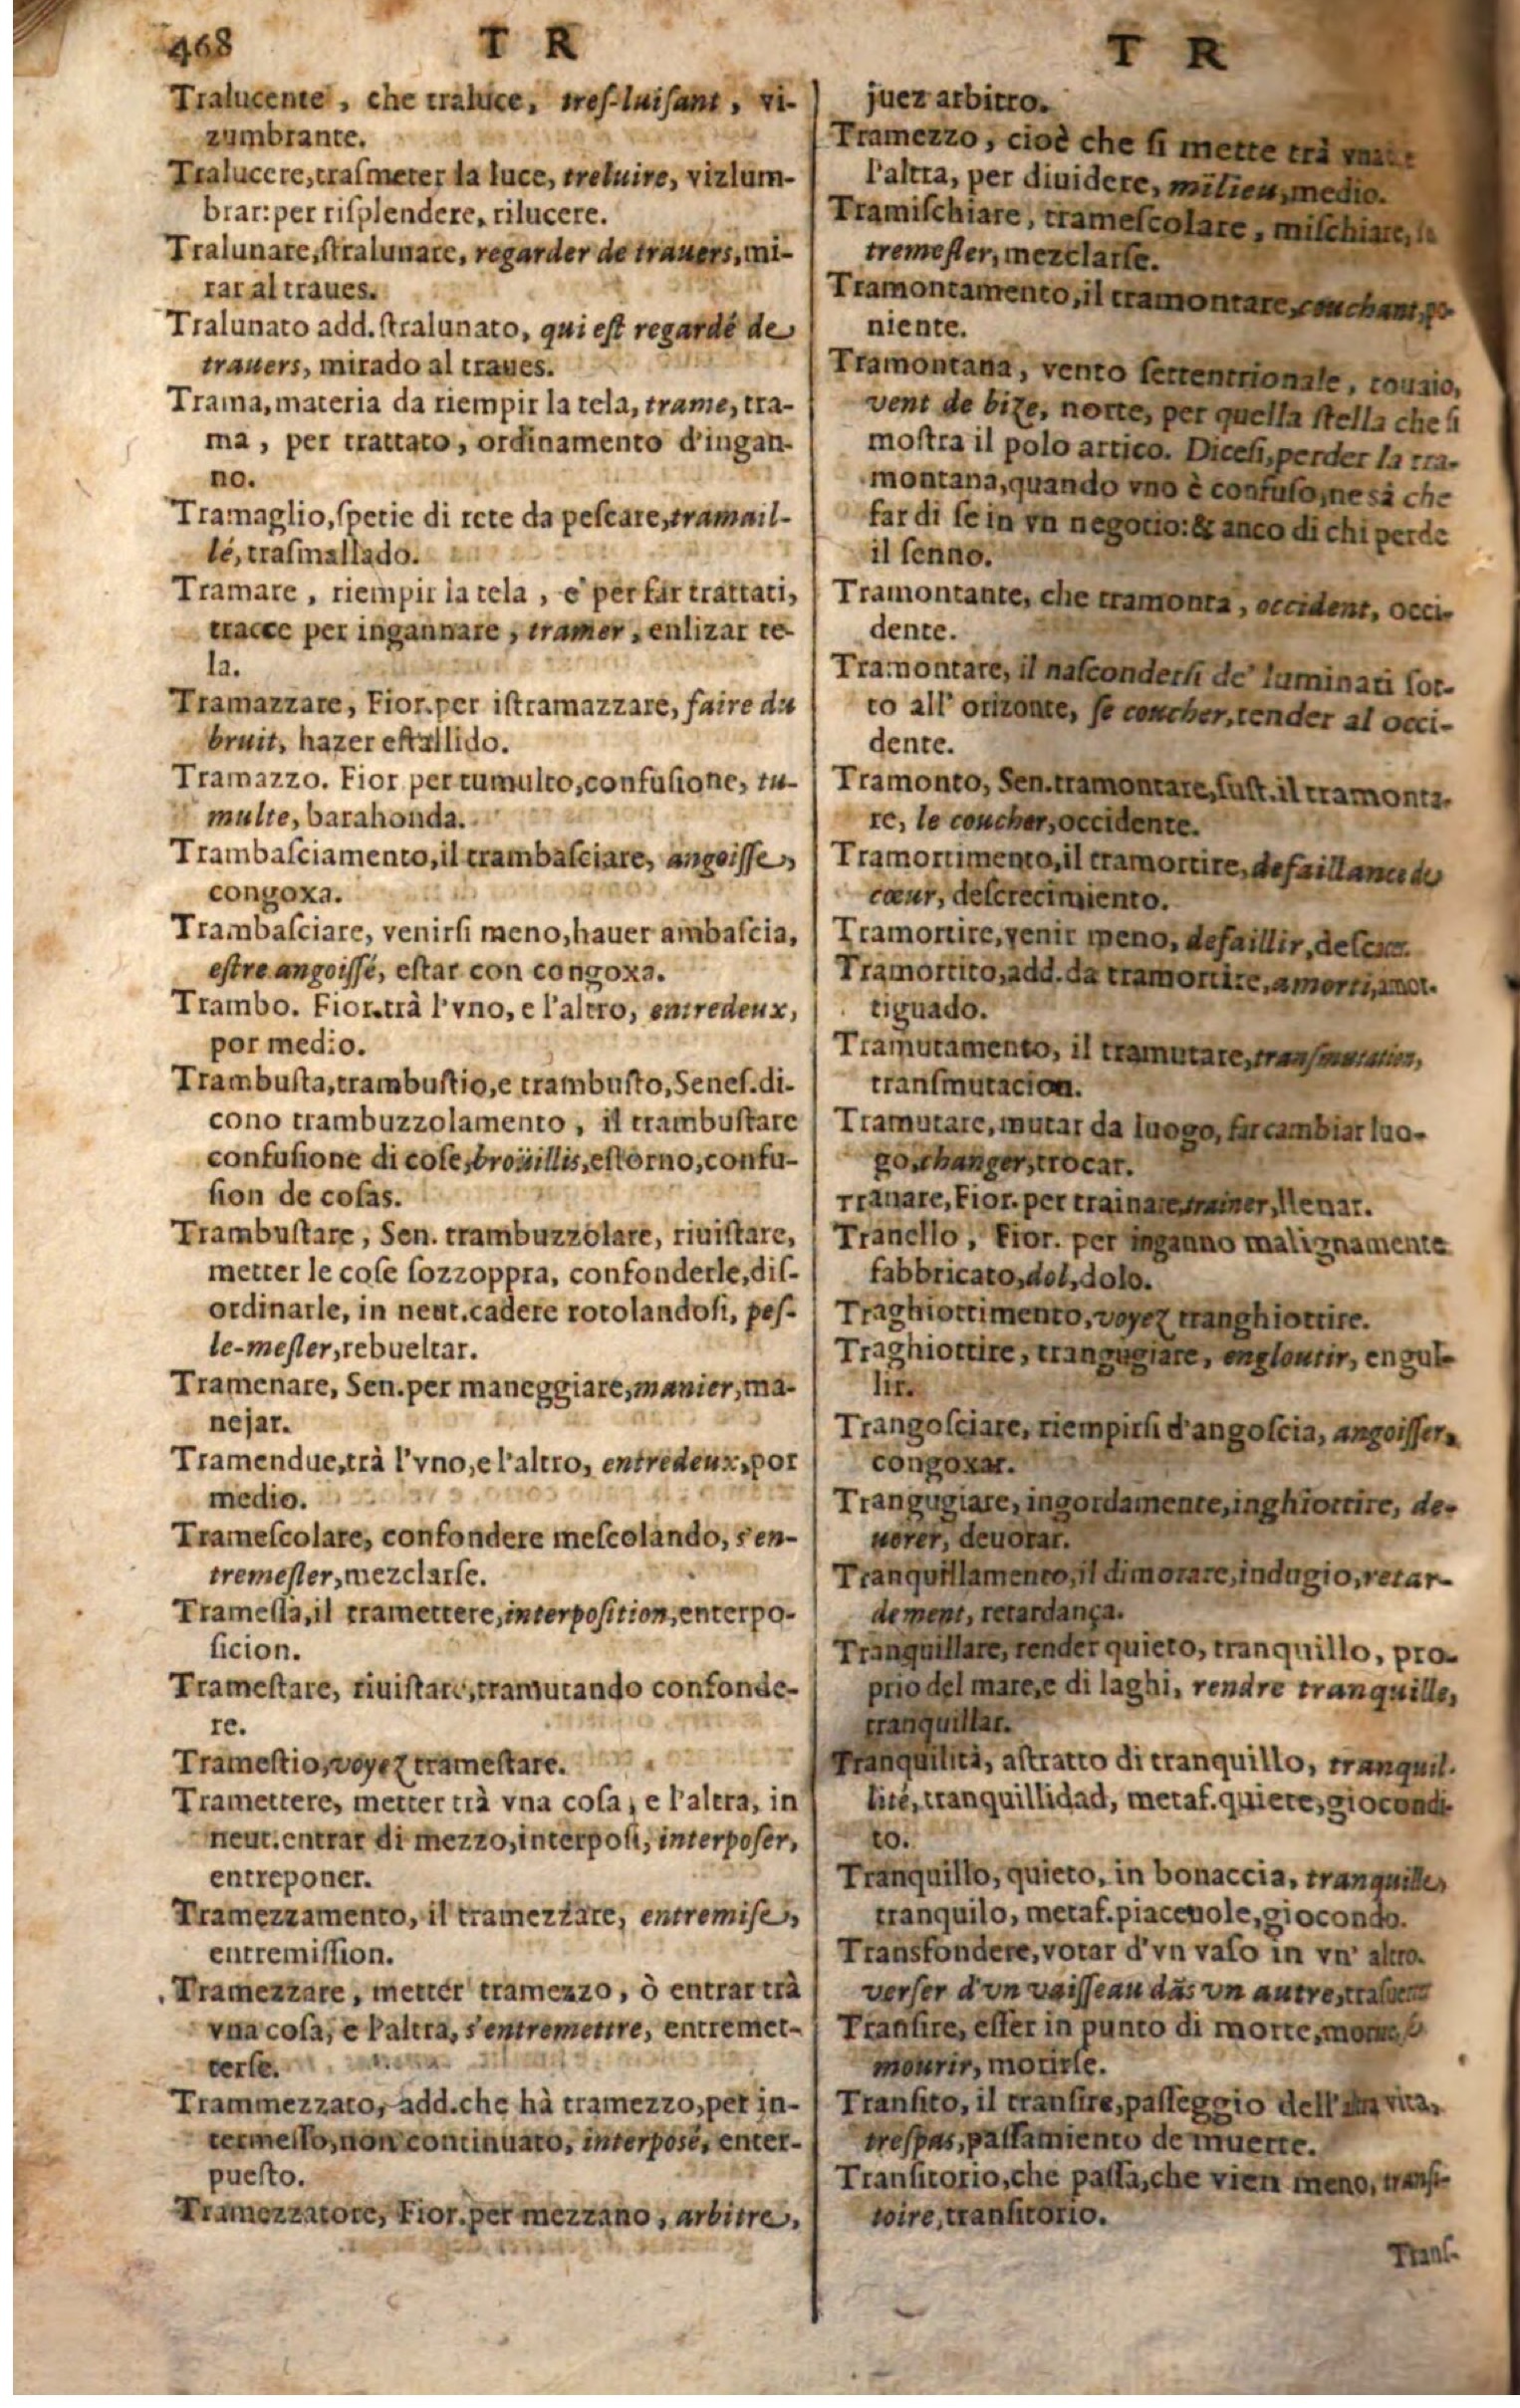 468 T R
Tralucente, che traluce, tres-luiſant, vi-
zumbrante.
Tralucere,traſmeter la luce, treluire, vizlum-
brar: per riſplendere, rilucere.
Tralunare,ſtralunare, regarder de trauers, mi-
rar al traues.
Tralunato add. ſtralunato, qui eſt regardé de
trauers, mirado al traues.
Trama, materia da riempir la tela, trame, tra-
ma, per trattato, ordinamento d'ingan-
no.
Tramaglio, ſpetie di rete da peſcare, tramail-
lé, traſmallado.
Tramare, riempir la tela, e per far trattati,
tracce per ingannare, tramer, enlizar te-
la.
Tramazzare, Fior. per iſtramazzare, faire du
bruit, hazer eſtallido.
Tramazzo. Fior per tumulto, confuſione, tu-
multe, barahonda.
Trambaſciamento, il trambaſciare, angoiſſe,
congoxa.
Trambaſciare, venirſi meno, hauer ambaſcia,
eſtre angoiſſé, eſtar con congoxa.
Trambo. Fior. trà l'vno, e l'altro, entredeux,
por medio.
Trambuſta, trambuſtio, e trambuſto, Seneſ. di-
cono trambuzzolamento, il trambuſtare
confuſione di coſe, broüillis, eſtorno, confu-
ſion de coſas.
Trambuſtare, Sen. trambuzzolare, riuiſtare,
metter le coſe ſozzoppra, confonderle, diſ-
ordinarle, in neut. cadere rotolandoſi, peſ-
le-meſler, rebueltar.
Tramenare, Sen. per maneggiare, manier, ma-
nejar.
Tramendue, trà l'vno, e l'altro, entredeux, por
medio.
Trameſcolare, confondere meſcolando, s'en-
tremeſler, mezclarſe.
Trameſſa, il tramettere, interpoſition, enterpo-
ſicion.
Trameſtare, riuiſtare, tramutando confonde-
re.
Trameſtio, voyez trameſtare.
Tramettere, metter trà vna coſa, e l'altra, in
neut. entrar di mezzo, interpoſi, interpoſer,
entreponer.
Tramezzamento, il tramezzare, entremiſe,
entremiſſion.
Tramezzare, metter tramezzo, ò entrar trà
vna coſa, e l'altra, s'entremettre, entremet-
terſe.
Trammezzato, add. che hà tramezzo, per in-
termeſſo, non continuato, interposé, enter-
pueſto.
Tramezzatore, Fior. per mezzano, arbitre,
T R
juez arbitro.
Tramezzo, cioè che ſi mette trà vna
l'altra, per diuidere, milieu, medio.
Tramiſchiare, trameſcolare, miſchiare,
tremeſler, mezclarſe.
Tramontamento, il tramontare, couchant, po-
niente.
Tramontana, vento ſettentrionale, rouaio,
vent de bize, norte, per quella ſtella che ſi
moſtra il polo artico. Diceſi, perder la tra-
montana, quando vno è confuſo, ne sà che
far di ſe in vn negotio: & anco di chi perde
il ſenno.
Tramontante, che tramonta, occident, occi-
dente.
Tramontare, il naſconderſi de' luminari ſot-
to all' orizonte, ſe coucher, tender al occi-
dente.
Tramonto, Sen. tramontare, ſuſt. il tramonta-
re, le coucher, occidente.
Tramortimento, il tramortire, defaillance de
cœur, deſcrecimiento.
Tramortire, venir meno, defaillir,
Tramortito, add. da tramortire, amorti, amor-
tiguado.
Tramutamento, il tramutare, tranſmutation,
tranſmutacion.
Tramutare, mutar da luogo, far cambiar luo-
go, changer, trocar.
Tranare, Fior. per trainare, trainer, llenar.
Tranello, Fior. per inganno malignamente
fabbricato, dol, dolo.
Traghiottimento, voyez tranghiottire.
Traghiottire, trangugiare, engloutir, engul-
lir.
Trangoſciare, riempirſi d'angoſcia, angoiſſer,
congoxar.
Trangugiare, ingordamente, inghiottire, de-
uorer, deuorar.
Tranquillamento, il dimorare, indugio, retar-
dement, retardança.
Tranquillare, render quieto, tranquillo, pro-
prio del mare, e di laghi, rendre tranquille,
tranquillar.
Tranquilità, aſtratto di tranquillo, tranquil-
lité, tranquillidad, metaf. quiete, giocondi-
to.
Tranquillo, quieto, in bonaccia, tranquille,
tranquilo, metaf. piaceuole, giocondo.
Transfondere, votar d'vn vaſo in vn' altro.
verſer d'vn vaiſſeau dãs vn autre,
Tranſire, eſſer in punto di morte,
mourir, morirſe.
Tranſito, il tranſire, paſſeggio dell' vita,
treſpas, paſſamiento de muerte.
Tranſitorio, che paſſa, che vien meno, tranſi-
toire, tranſitorio.
Tranſ-